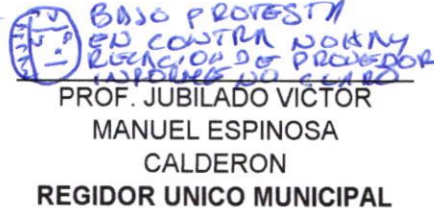 BAJO PROTESTA
EN CONTRA NO HAY
RELACION DE PROVEDOR
INFORME NO CLARO
PROF. JUBILADO VICTOR
MANUEL ESPINOSA
CALDERON
REGIDOR UNICO MUNICIPAL